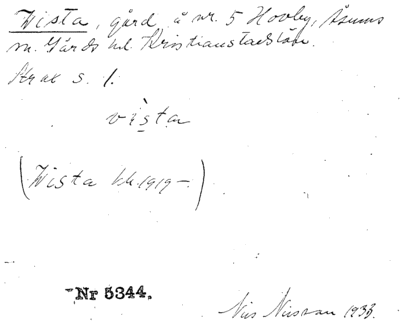 Wista, gård å nr. 5 Hovby, Åsums
sn. Gärds hd Kristianstads län.
Krax s. 1.
vista
(Wista kk. 1919–)
Nr 5344.
Nils Nilsson 1933.